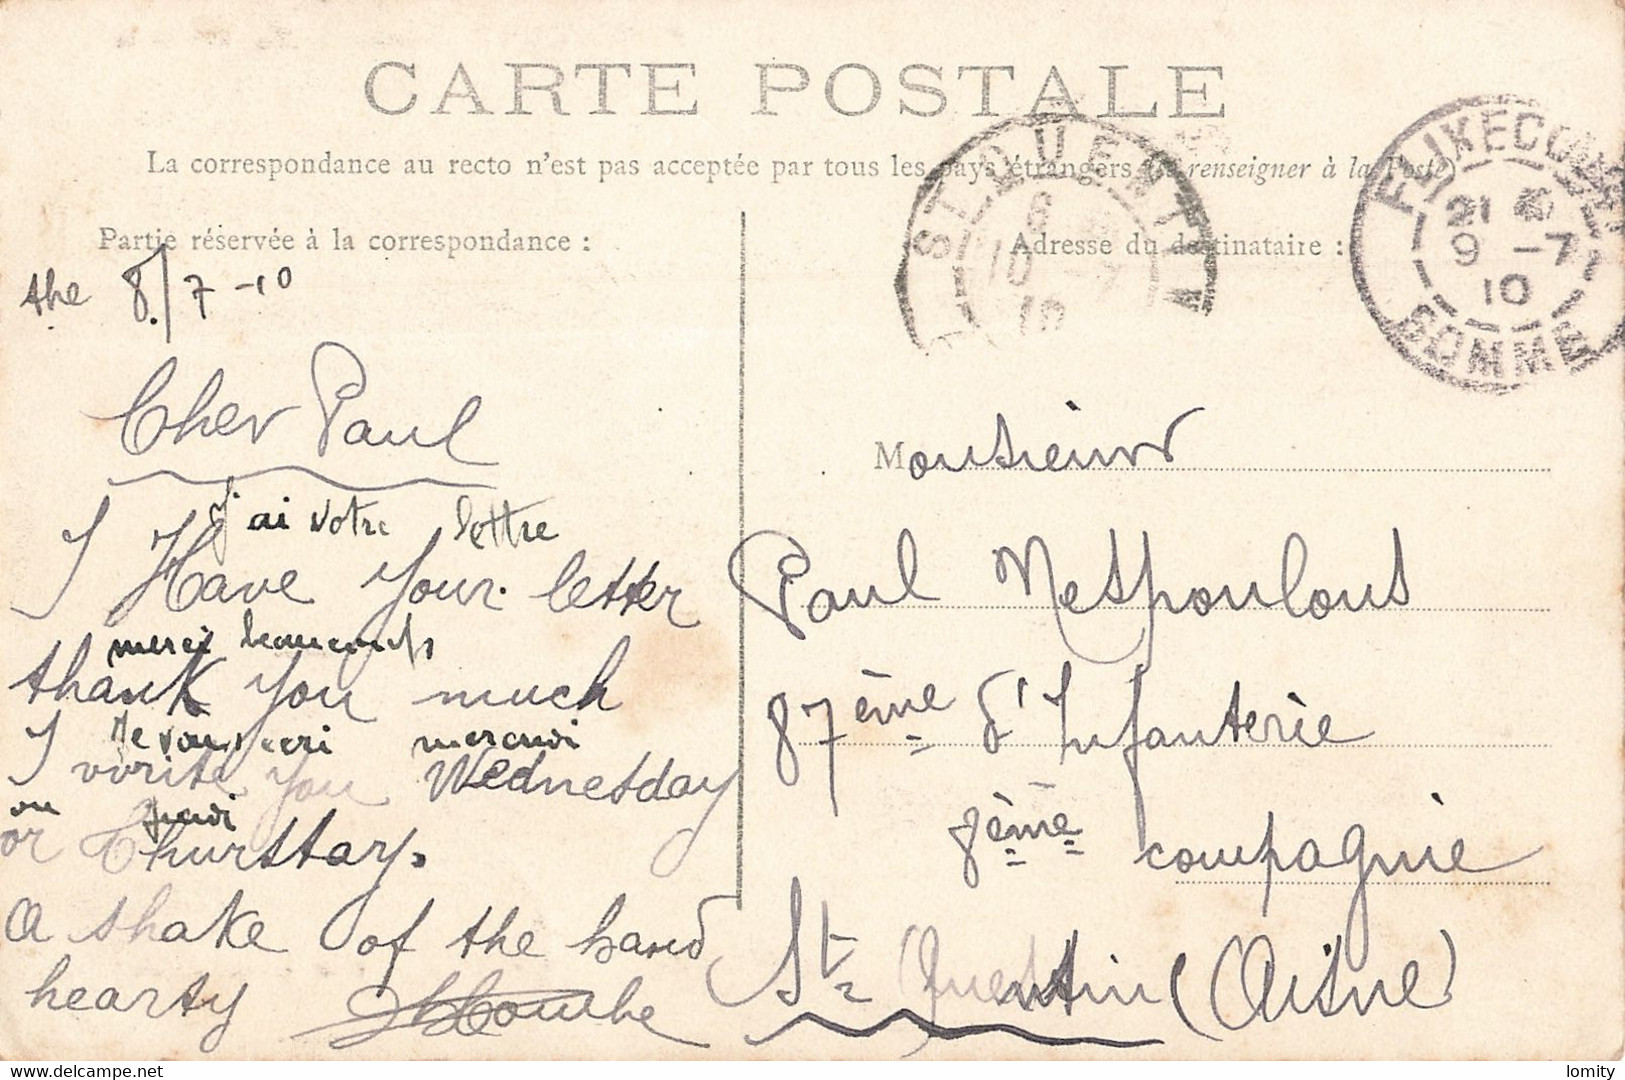 CARTE POSTALE
La correspondance au recto n'est pas acceptée par tous les pays étrangers (Se renseigner à la Poste)
Partie réservée à la correspondance :
the 8/7-10
Cher Paul
j'ai votre lettre
I Have your letter
merci beaucoup
thank you much
Je vous mercredi
I write you Wednesday
ou jeudi
or Thurstay.
A shake of the hand
hearty
Adresse du destinataire :
Monsieur
Paul Nespoulous
87ème d'Infanterie
8ème compagnie
St Quentin (Aisne)
ST QUENTIN
10 -7
10
FLIXECOURT
21
9 -7
10
SOMME
www.delcampe.net
lomity